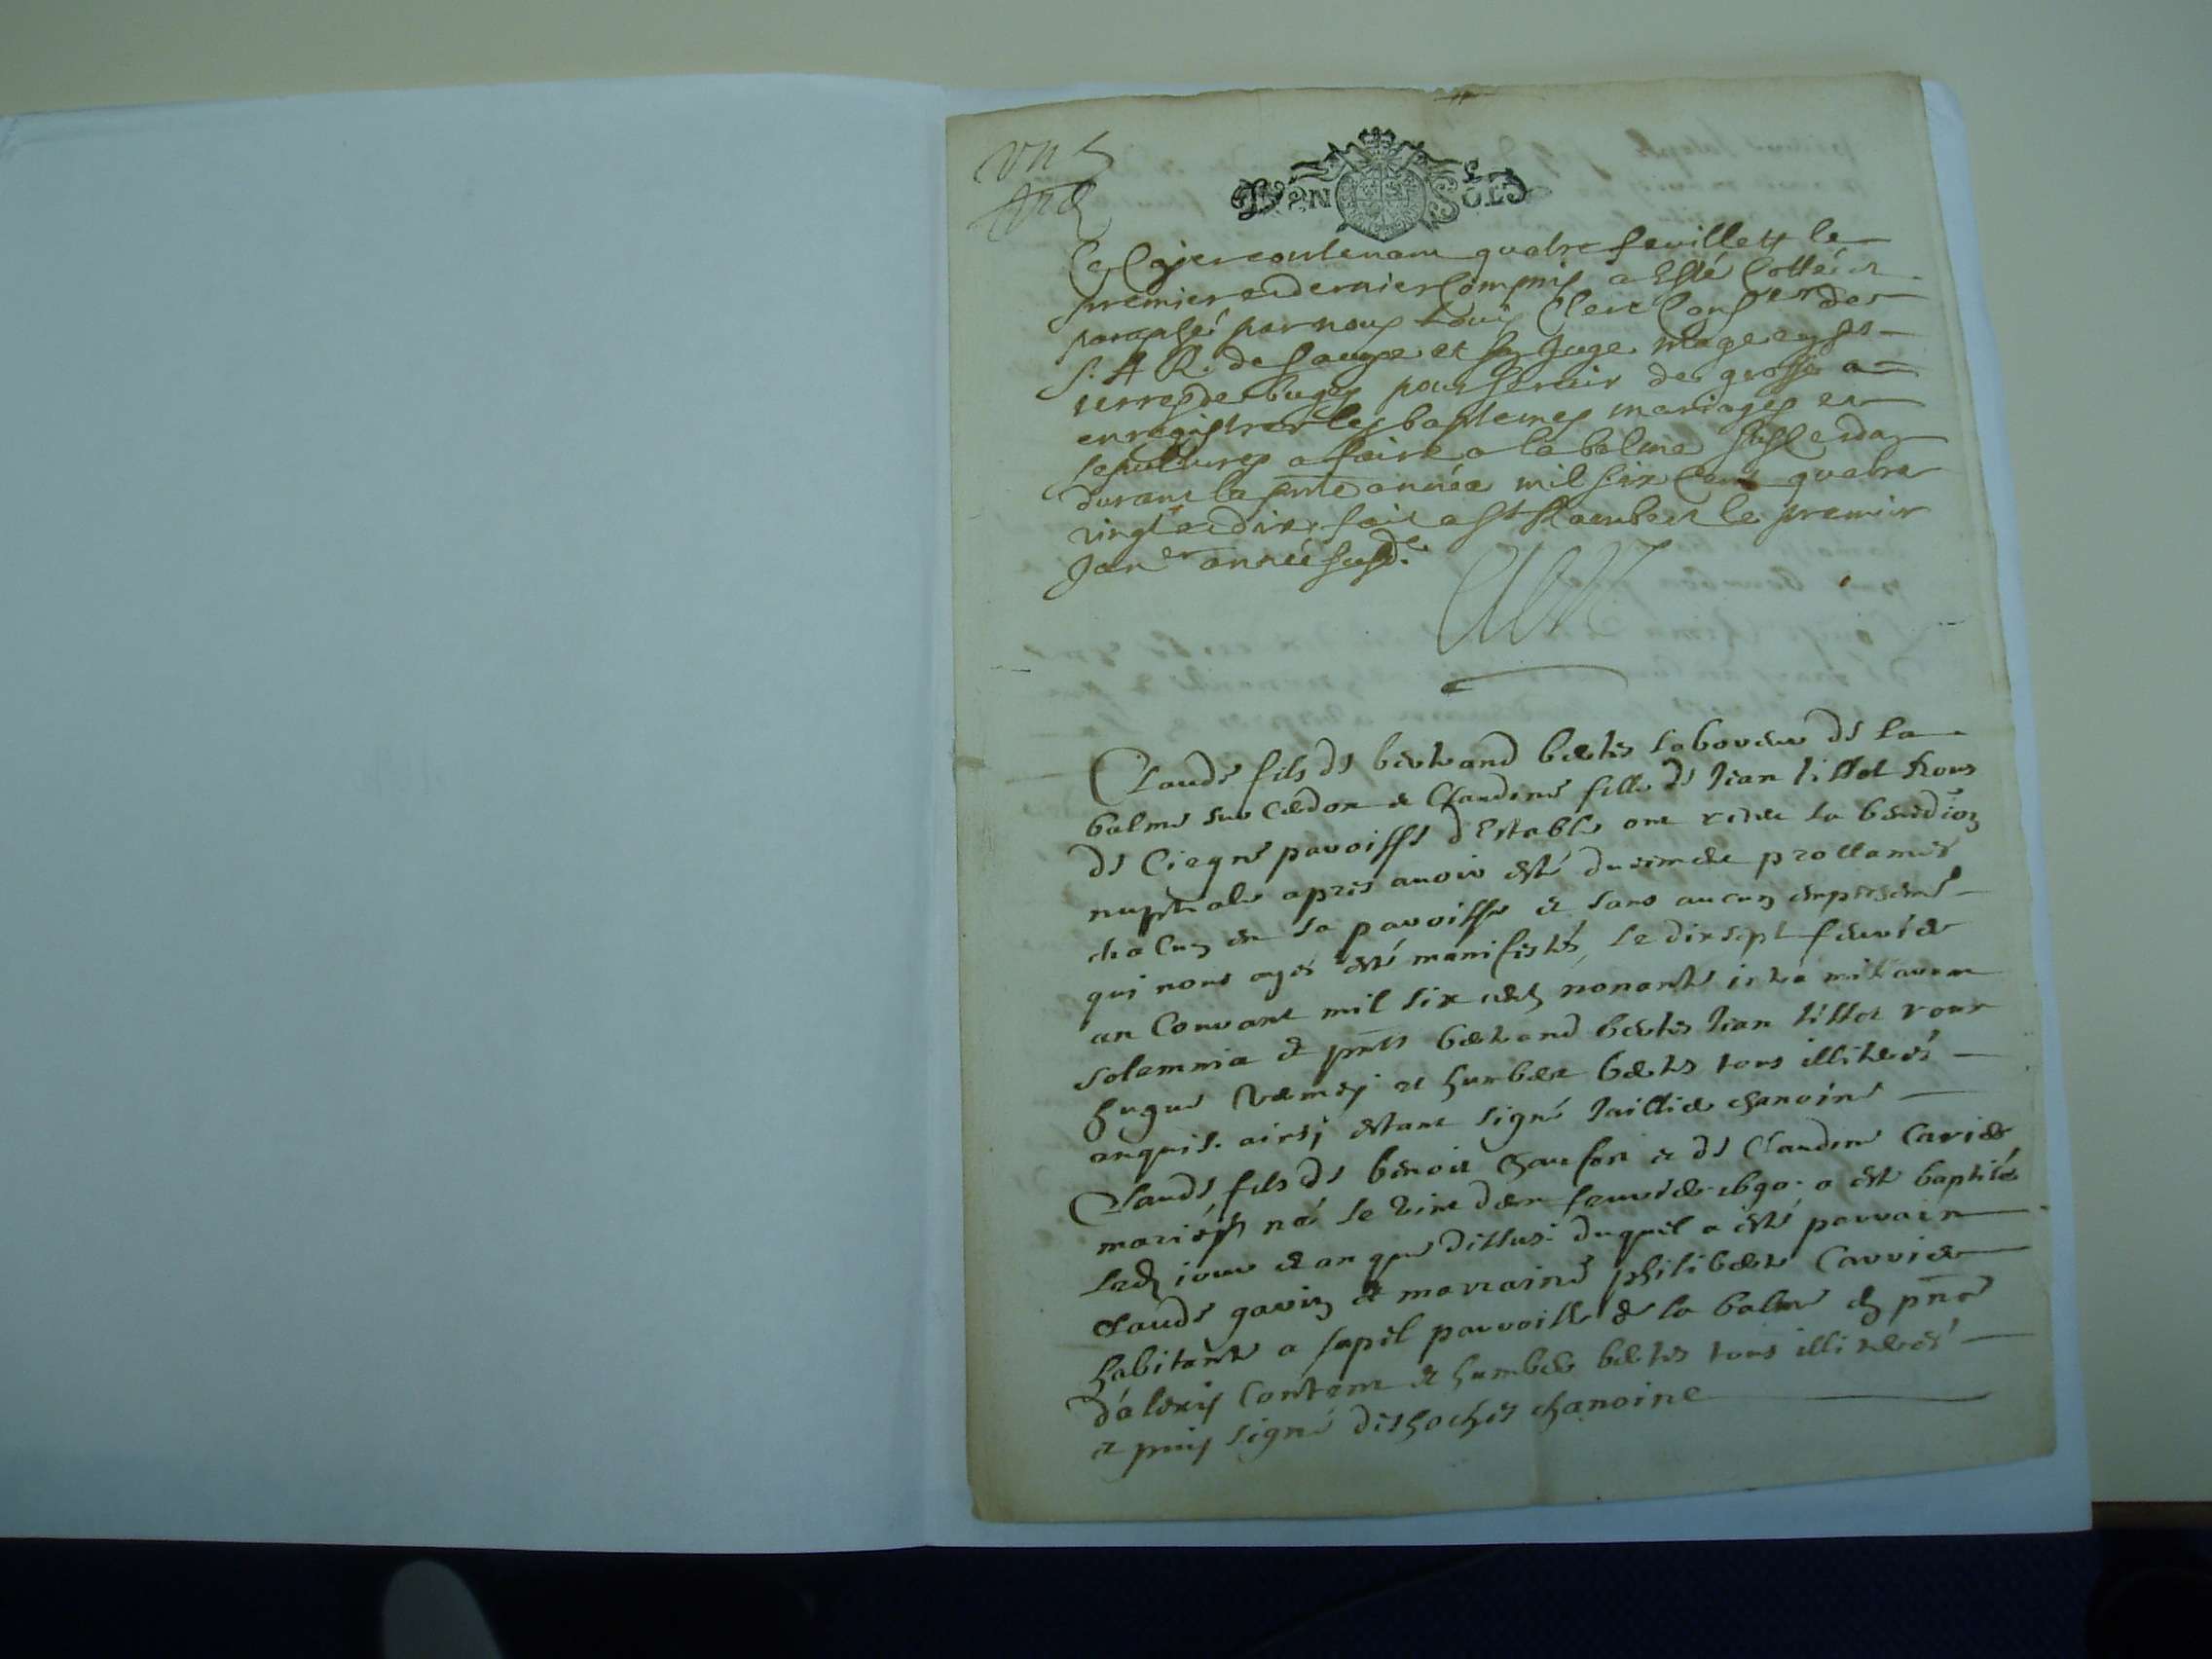 VN SOLS
Ce Cayer contenant quatre feuillets le
premier et dernier Compris a Esté Cotté et
paraphé par nous Louis Clerc Conser de
S. A R. de Sauoye et Son Juge mage en ses
terres de bugey pour Seruir de grosse a
enregistrer les baptemes mariages et
sepultures a faire a la balme Sus Cerdon
durant la pnte année mil Six Cent quatre
vingt et dix, fait a St Rambert le premier
Janer année Susd.
Clerc
Claude fils de bertrand bertet laboreur de la
balme sur Cerdon et Claudine fille de Jean tillot Roux
de Ciegne paroisse d'Estable ont receu la benedion
nuptiale apres auoir esté duement proclamés
chacun en sa paroisse et sans aucun empeschemt
qui nous aye esté manifesté, le dixsept feurier
an Courant mil six cents nonante intra missarum
solemnia et pnts bertrand bertet Jean tillot roux
hugue et humbert bertet tous illiterés
enquis. ainsi estant signé chanoine
Claude fils de benoit et de Claudine Carrier
mariés né le feurier 1690. a esté baptisé
led jour et an que dessus. duquel a esté parrain
Claude et marraine philiberte Carrier
habitante a paroisse de la balme en pnce
d'alexis Content et humber bertet tous illiterés
et puis signé deshoches chanoine